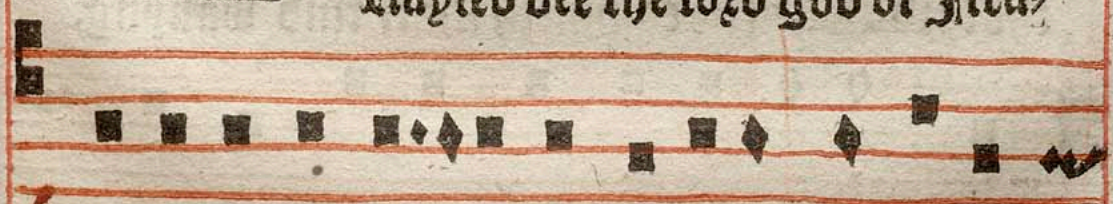 Praysed bee the lord god of Israel